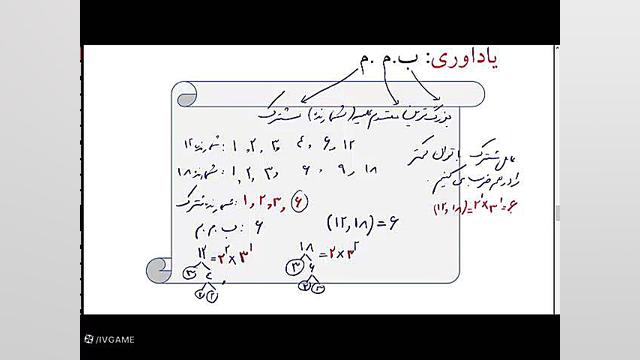 یادآوری: ب.م.م
بزرگ‌ترین مقسوم علیه (شمارنده) مشترک
شمارنده ۱۲: ۱, ۲, ۳, ۴, ۶, ۱۲
شمارنده ۱۸: ۱, ۲, ۳, ۶, ۹, ۱۸
شمارنده مشترک: ۱, ۲, ۳, ۶
ب.م.م: ۶
(۱۲,۱۸)=۶
۱۲ = ۲² × ۳¹
۳ ۴
۲ ۲
۱۸ = ۲ × ۳²
۳ ۶
۲ ۳
مشترک با توان کمتر
را در هم ضرب می‌کنیم.
(۱۲,۱۸)=۲¹×۳¹=۶
/IVGAME